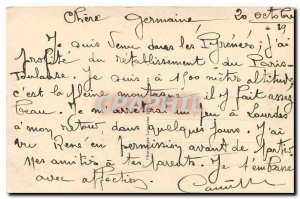 Chère Germaine, 20 octobre
39
Je suis venu dans les Pyrénées, j'ai
profité du rétablissement du Paris-
Toulouse. Je suis à 1500 mètres altitude,
c'est la pleine montagne. il fait assez
beau. Je m'arrêterai un peu à Lourdes
à mon retour dans quelques jours. J'ai
vu René en permission avant de partir.
Mes amitiés à tes parents. Je t'embrasse
avec affection.
Camille